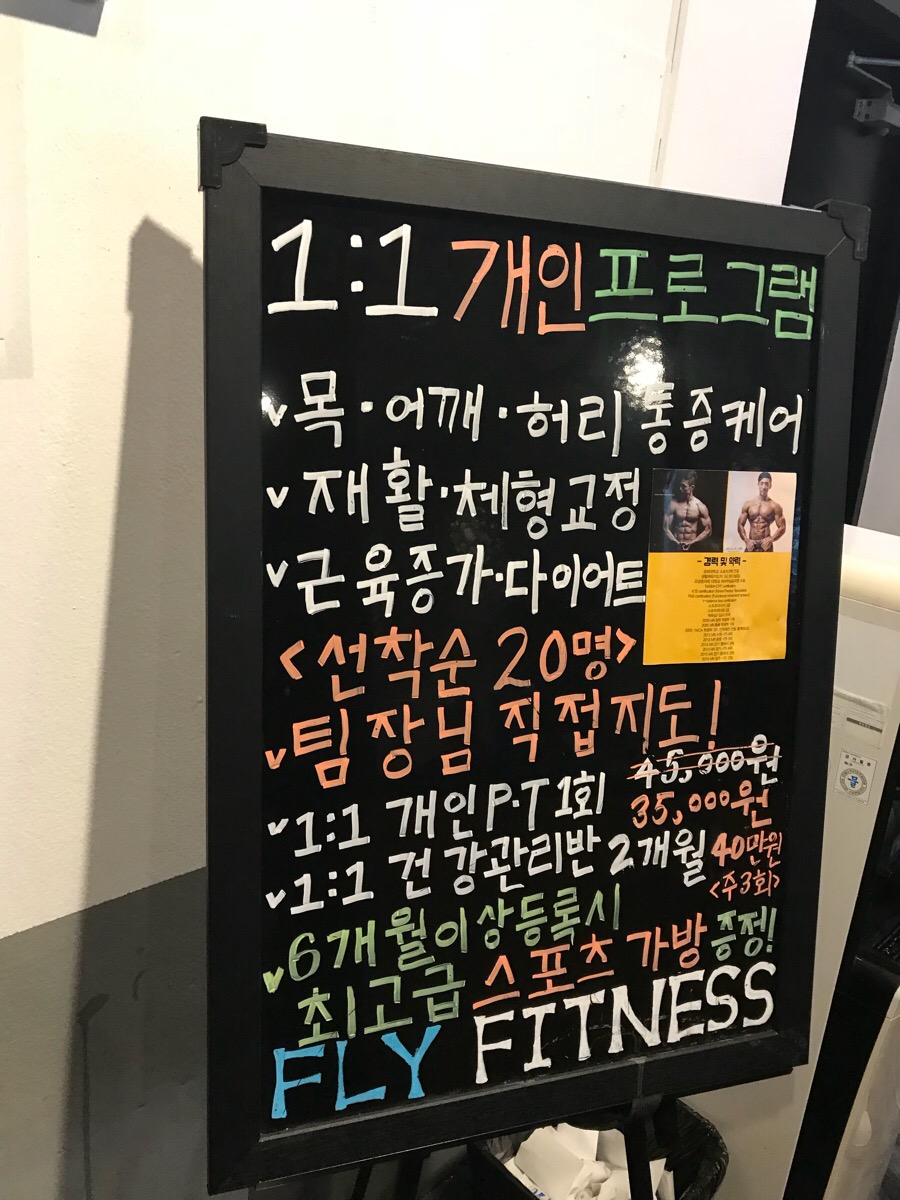 1:1 개인프로그램
v 목·어깨·허리 통증케어
v 재활·체형교정
v 근육증가·다이어트
- 경력 및 약력 -
<선착순 20명>
v 팀장님 직접지도!
45,000원
v 1:1 개인P·T 1회 35,000원
v 1:1 건강관리반 2개월 40만원
<주3회>
v 6개월이상등록시
최고급 스포츠 가방 증정!
FLY FITNESS